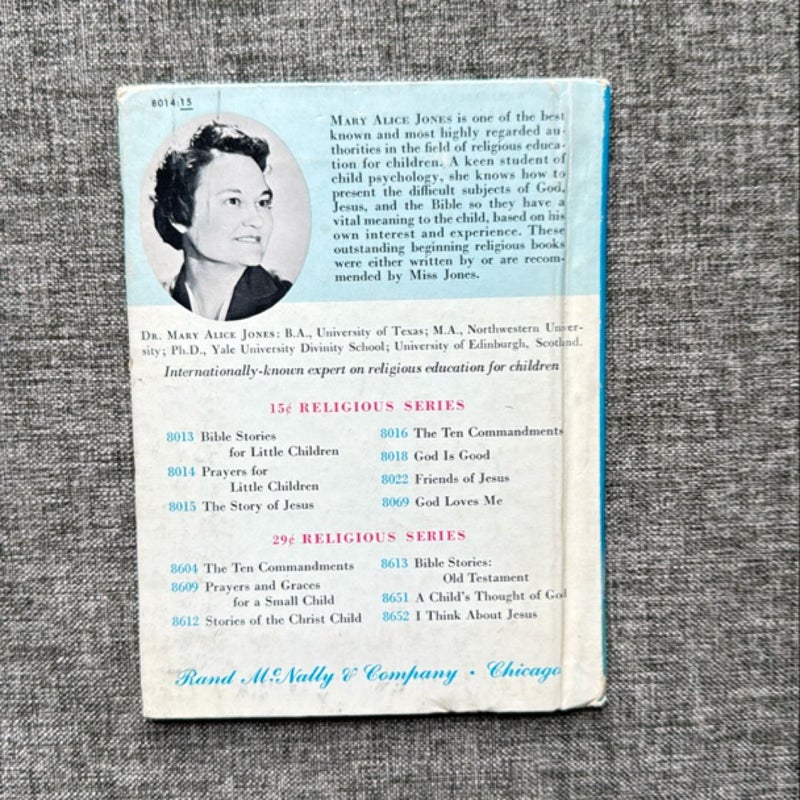 8014:15
MARY ALICE JONES is one of the best
known and most highly regarded au-
thorities in the field of religious educa-
tion for children. A keen student of
child psychology, she knows how to
present the difficult subjects of God,
Jesus, and the Bible so they have a
vital meaning to the child, based on his
own interest and experience. These
outstanding beginning religious books
were either written by or are recom-
mended by Miss Jones.
DR. MARY ALICE JONES: B.A., University of Texas; M.A., Northwestern Univer-
sity; Ph.D., Yale University Divinity School; University of Edinburgh, Scotland.
Internationally-known expert on religious education for children
15¢ RELIGIOUS SERIES
8013 Bible Stories
for Little Children
8014 Prayers for
Little Children
8015 The Story of Jesus
8016 The Ten Commandments
8018 God Is Good
8022 Friends of Jesus
8069 God Loves Me
29¢ RELIGIOUS SERIES
8604 The Ten Commandments
8609 Prayers and Graces
for a Small Child
8612 Stories of the Christ Child
8613 Bible Stories:
Old Testament
8651 A Child's Thought of God
8652 I Think About Jesus
Rand McNally & Company · Chicago